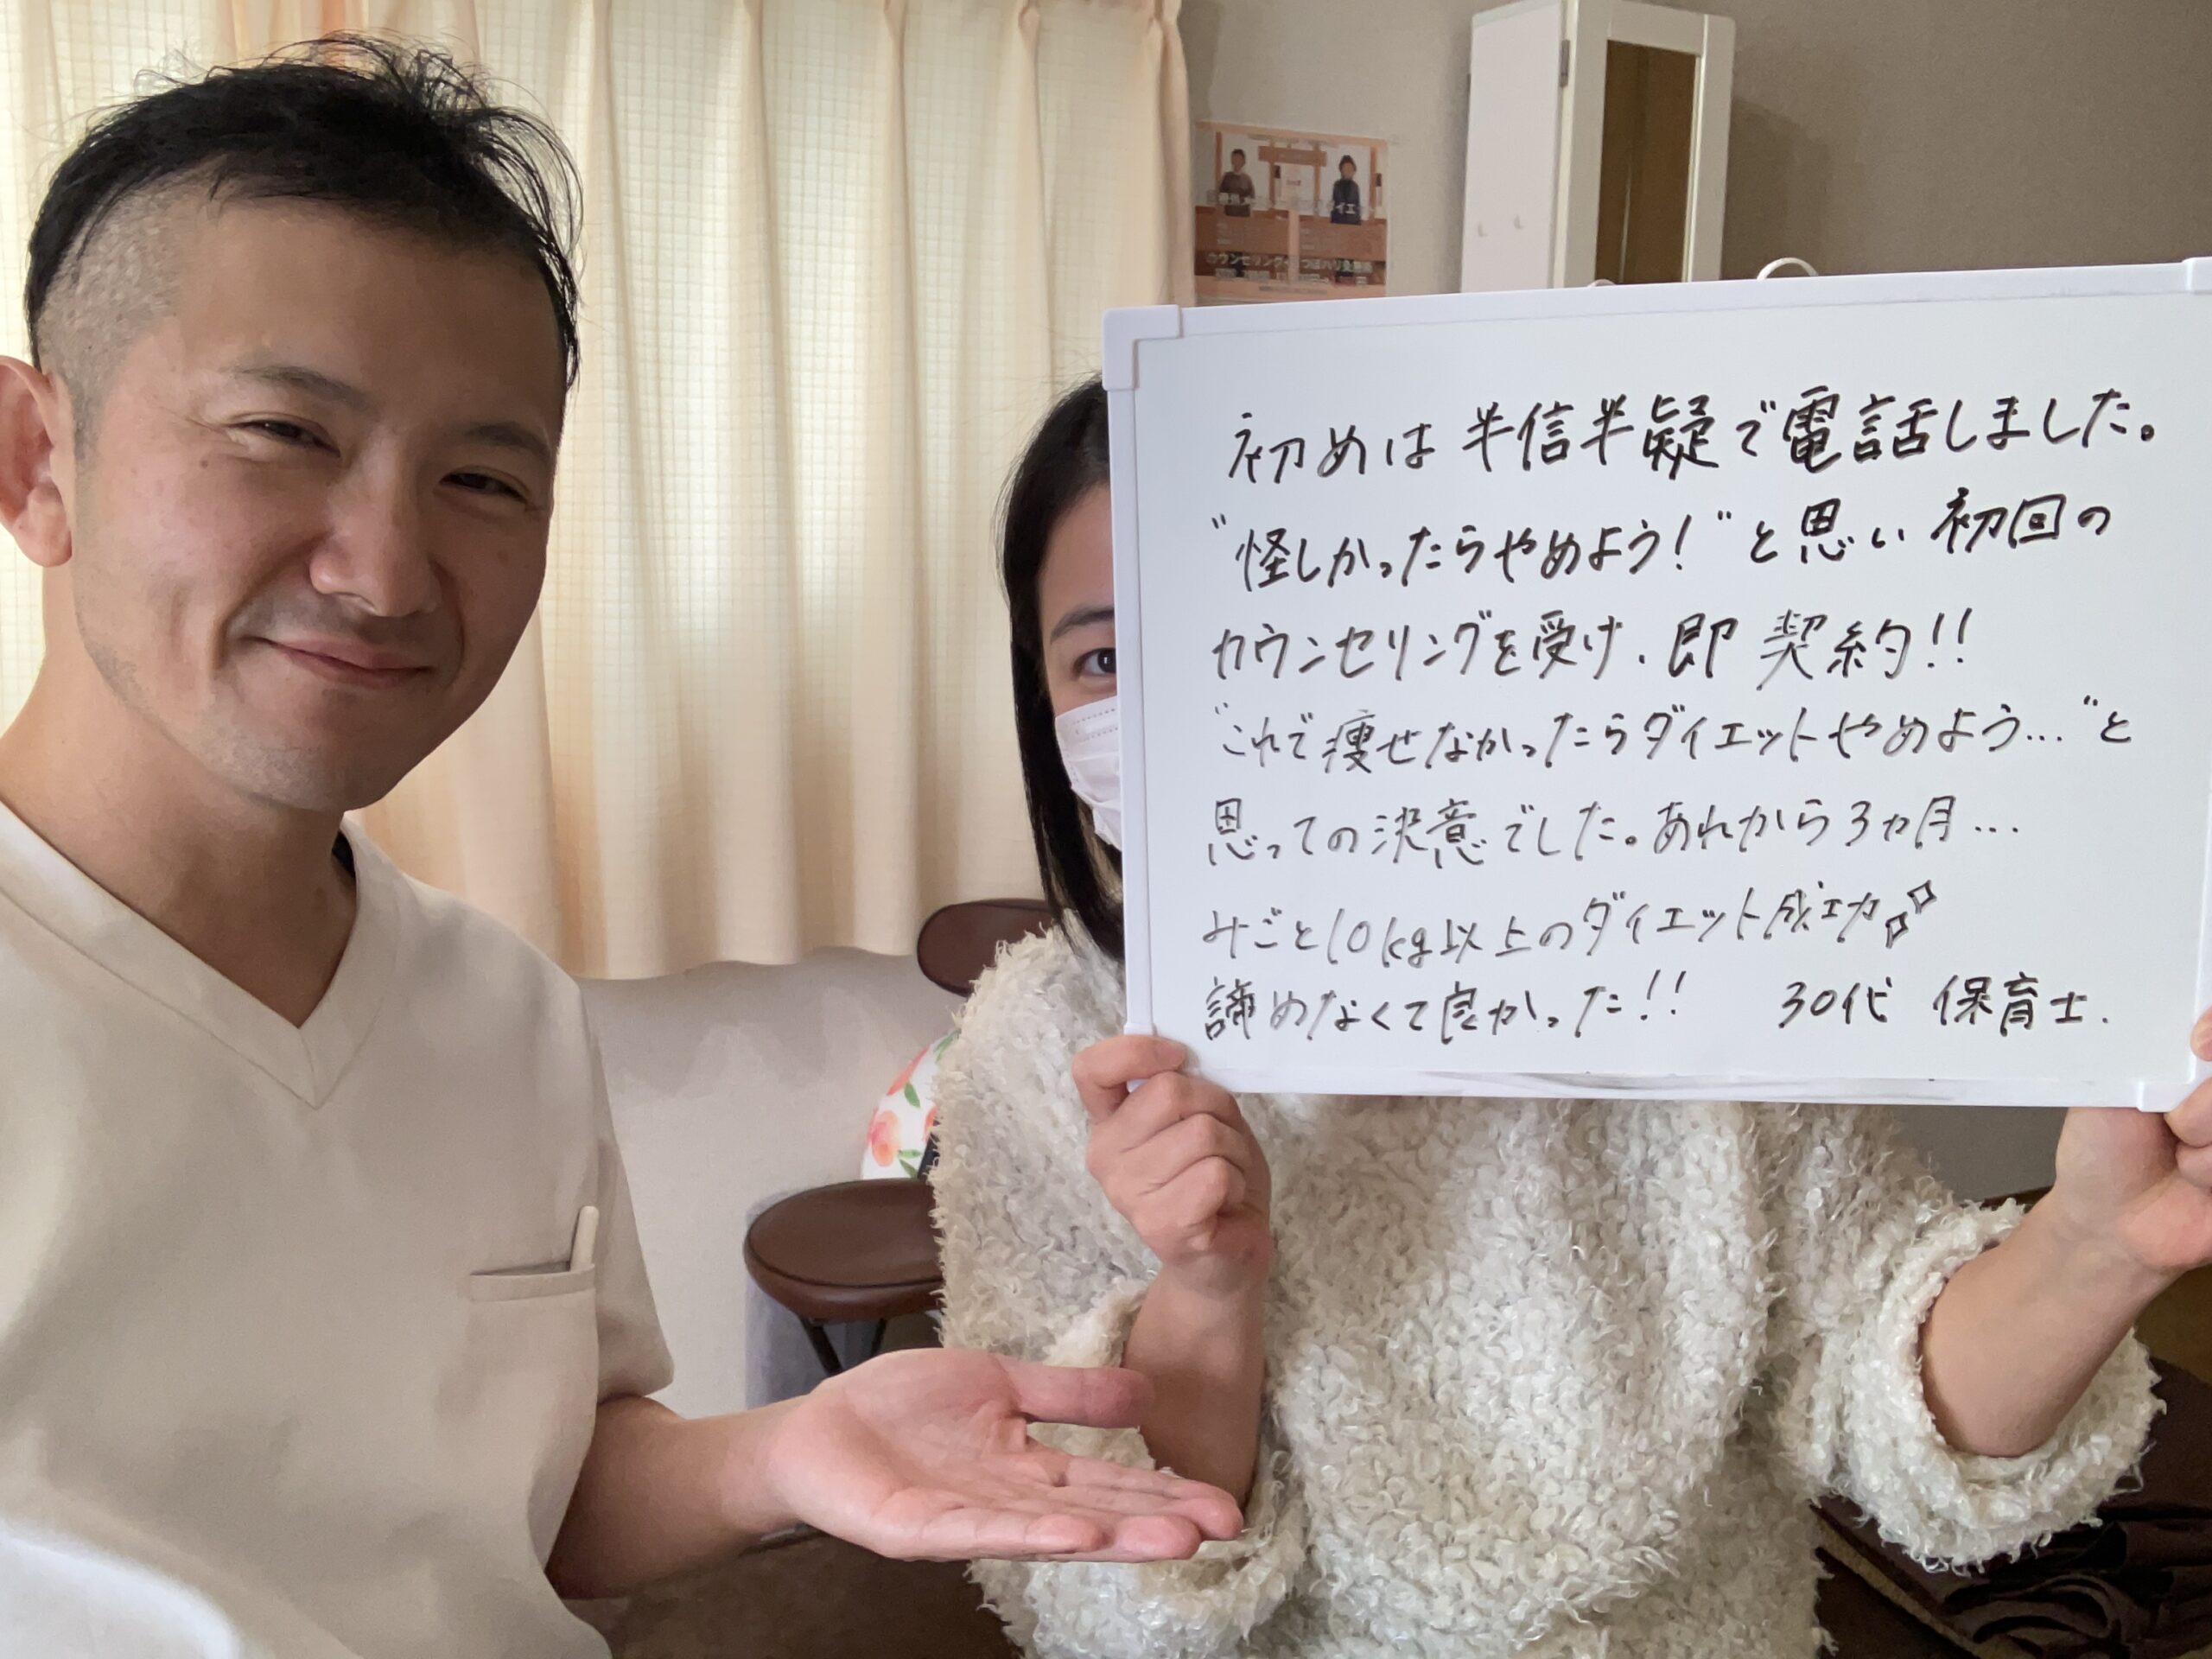 初めは半信半疑で電話しました。
"怪しかったらやめよう!"と思い初回の
カウンセリングを受け、即契約!!
"これで痩せなかったらダイエットやめよう…"と
思っての決意でした。あれから3ヵ月…
みごと10kg以上のダイエット成功
諦めなくて良かった!! 30代 保育士.